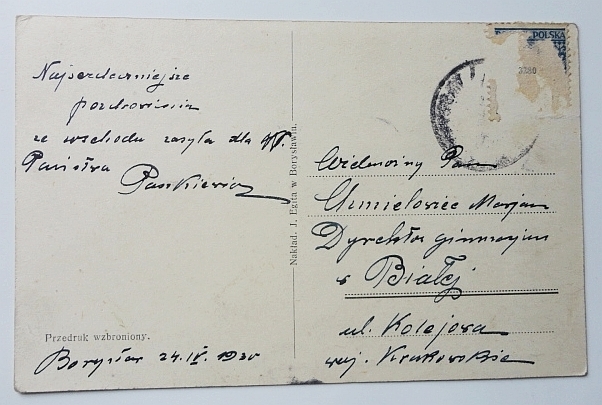 Najserdeczniejsze
pozdrowienia
ze wschodu zasyła dla
Państwa Pankiewicz
Przedruk wzbroniony.
Borysław 24.IV. 1930
Nakład. J. Egita w Borysławiu.
POLSKA
3380
Wielmożny Pan
Chmielowiec Marjan
Dyrektor gimnazjum
w Białej
ul. Kolejowa
woj. Krakowskie